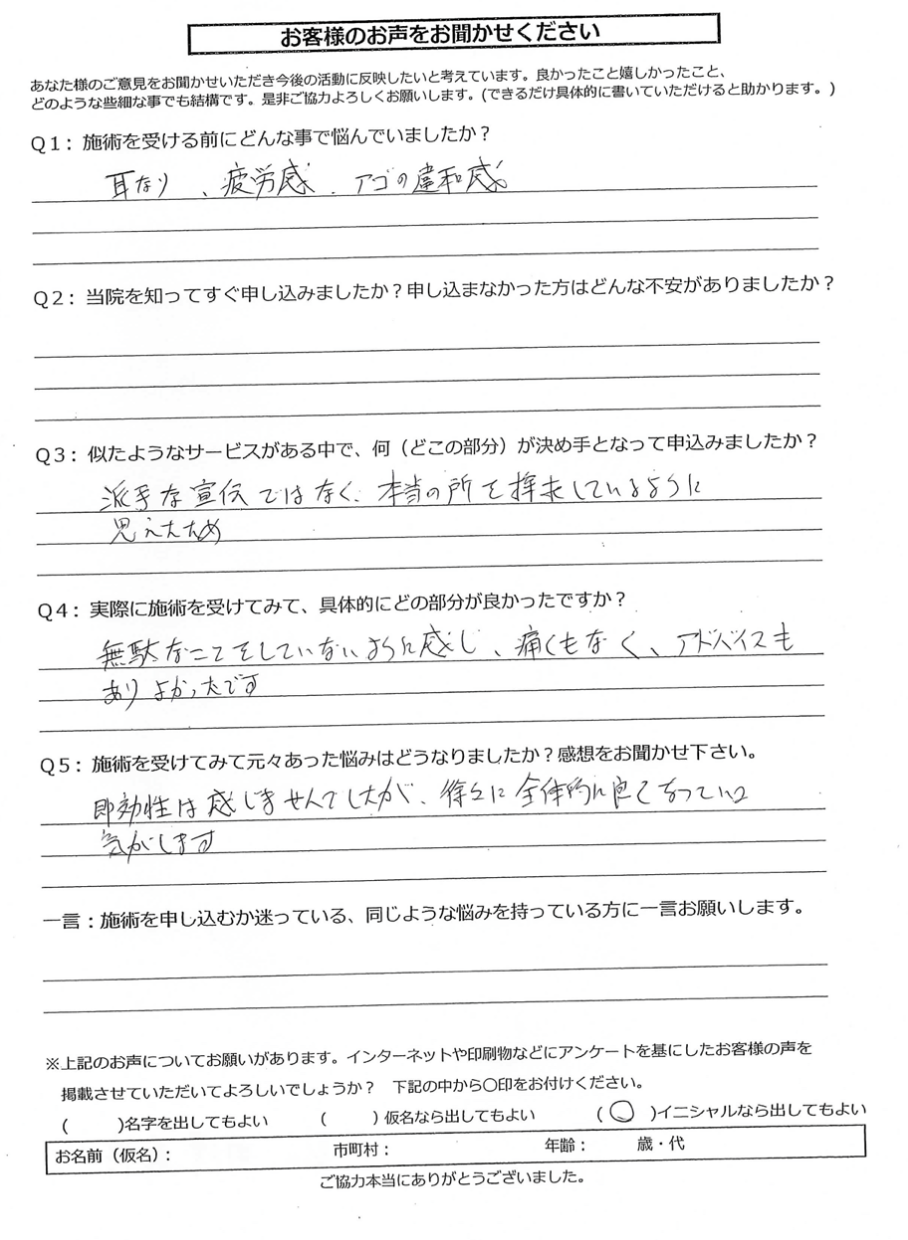 お客様のお声をお聞かせください
あなた様のご意見をお聞かせいただき今後の活動に反映したいと考えています。良かったこと嬉しかったこと、
どのような些細な事でも結構です。是非ご協力よろしくお願いします。(できるだけ具体的に書いていただけると助かります。)
Q1：施術を受ける前にどんな事で悩んでいましたか？
耳なり、疲労感、アゴの違和感
Q2：当院を知ってすぐ申し込みましたか？申し込まなかった方はどんな不安がありましたか？
Q3：似たようなサービスがある中で、何（どこの部分）が決め手となって申込みましたか？
派手な宣伝ではなく、本当の所を探求しているように
思えたため
Q4：実際に施術を受けてみて、具体的にどの部分が良かったですか？
無駄なことをしていないように感じ、痛くもなく、アドバイスも
ありよかったです
Q5：施術を受けてみて元々あった悩みはどうなりましたか？感想をお聞かせ下さい。
即効性は感じませんでしたが、徐々に全体的に良くなっている
気がします
一言：施術を申し込むか迷っている、同じような悩みを持っている方に一言お願いします。
※上記のお声についてお願いがあります。インターネットや印刷物などにアンケートを基にしたお客様の声を
掲載させていただいてよろしいでしょうか？　下記の中から〇印をお付けください。
(　　)名字を出してもよい　　(　　)仮名なら出してもよい　　(〇)イニシャルなら出してもよい
お名前（仮名）：　　市町村：　　年齢：　　歳・代
ご協力本当にありがとうございました。